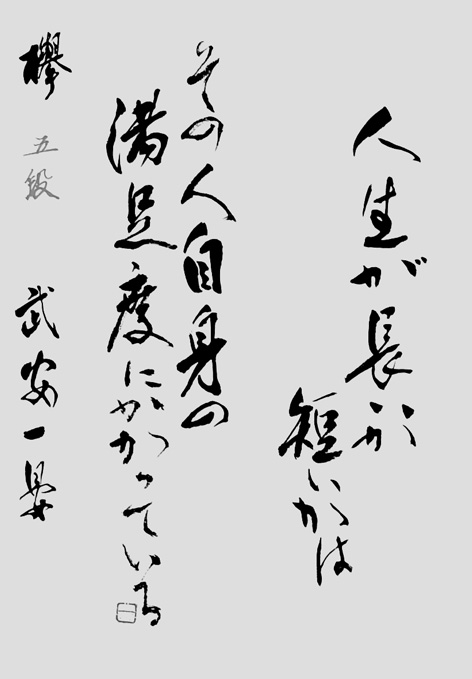 人生が長いか
短いかは
その人自身の
満足度にかかっている
欅 五段 武安一
一